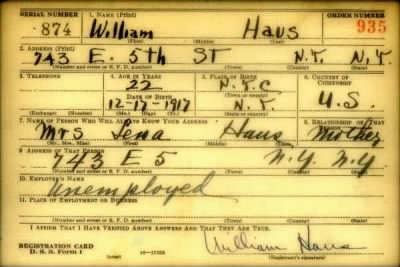 SERIAL NUMBER 1. NAME (Print) ORDER NUMBER
874 William Haus 935
(First) (Middle) (Last)
2. ADDRESS (Print)
743 E. 5th ST N.Y. N.Y.
(Number and street or R. F. D. number) (Town) (County) (State)
3. TELEPHONE 4. AGE IN YEARS 5. PLACE OF BIRTH 6. COUNTRY OF CITIZENSHIP
22 N.Y.C
DATE OF BIRTH (Town or county)
12-17-1917 N.Y. U.S.
(Exchange) (Number) (Mo.) (Day) (Yr.) (State or country)
7. NAME OF PERSON WHO WILL ALWAYS KNOW YOUR ADDRESS 8. RELATIONSHIP OF THAT PERSON
Mrs Lena Haus Mother
(Mr., Mrs., Miss) (First) (Middle) (Last)
9. ADDRESS OF THAT PERSON
743 E 5 N.Y. N.Y.
(Number and street or R. F. D. number) (Town) (County) (State)
10. EMPLOYER'S NAME
Unemployed
11. PLACE OF EMPLOYMENT OR BUSINESS
(Number and street or R. F. D. number) (Town) (County) (State)
I AFFIRM THAT I HAVE VERIFIED ABOVE ANSWERS AND THAT THEY ARE TRUE.
REGISTRATION CARD William Haus
D. S. S. Form 1 (Registrant's signature)